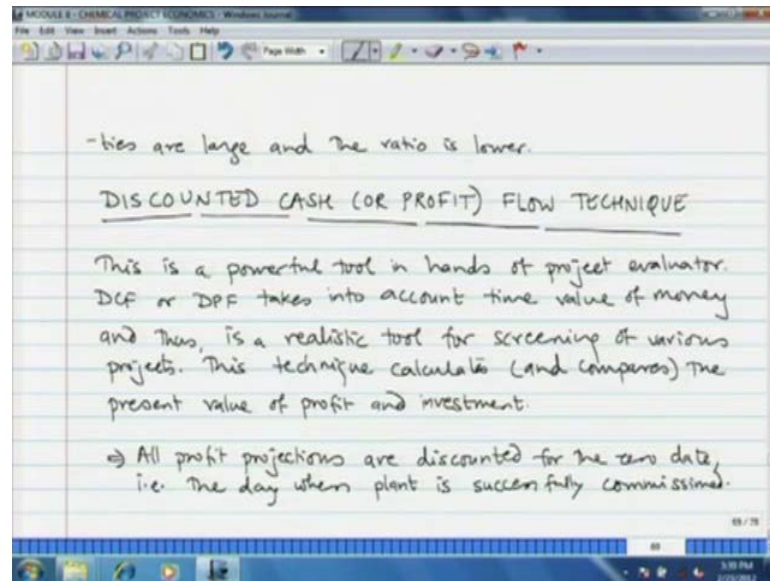 MODULE 8 - CHEMICAL PROJECT ECONOMICS - Windows Journal
File Edit View Insert Actions Tools Help
Page Width
-ties are large and the ratio is lower.
DISCOUNTED CASH (OR PROFIT) FLOW TECHNIQUE
This is a powerful tool in hands of project evaluator.
DCF or DPF takes into account time value of money
and thus, is a realistic tool for screening of various
projects. This technique calculates (and compares) the
present value of profit and investment.
⇒ All profit projections are discounted for the zero date,
i.e. The day when plant is successfully commissioned.
69
3:39 PM